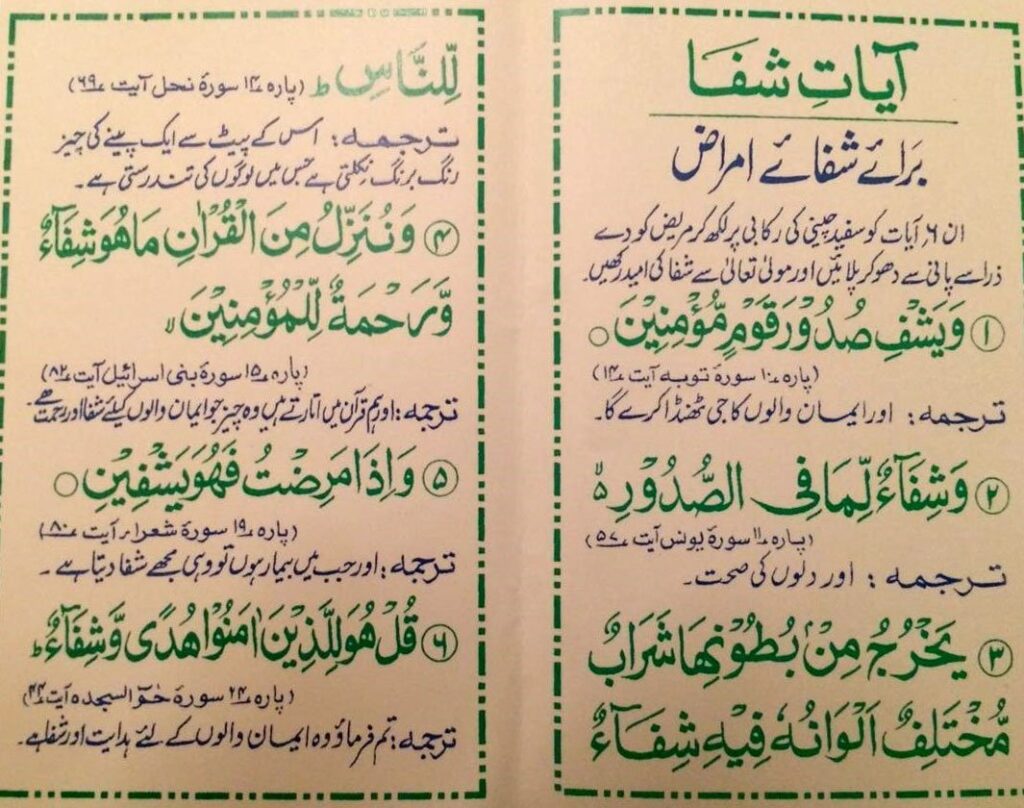 آیاتِ شفا
بَرائے شفائے امراض
ان ۶ آیات کو سفید چینی کی رکابی پر لکھ کر مریض کو دے
ذرا سے پانی سے دھو کر پلائیں اور مولیٰ تعالیٰ سے شفا کی امید رکھیں۔
① وَيَشْفِ صُدُوْرَ قَوْمٍ مُّؤْمِنِيْنَ ○
(پارہ ۱۰ سورۃ توبہ آیت ۱۴)
ترجمہ: اور ایمان والوں کا جی ٹھنڈا کرے گا۔
② وَشِفَآءٌ لِّمَا فِى الصُّدُوْرِ ۵ لا
(پارہ ۱۱ سورۃ یونس آیت ۵۷)
ترجمہ: اور دلوں کی صحت۔
③ يَخْرُجُ مِنْۢ بُطُوْنِهَا شَرَابٌ
مُّخْتَلِفٌ اَلْوَانُهٗ فِيْهِ شِفَآءٌ
لِّلنَّاسِ ط (پارہ ۱۴ سورۃ نحل آیت ۶۹)
ترجمہ: اس کے پیٹ سے ایک پینے کی چیز
رنگ برنگ نکلتی ہے جس میں لوگوں کی تندرستی ہے۔
④ وَنُنَزِّلُ مِنَ الْقُرْاٰنِ مَا هُوَ شِفَآءٌ
وَّرَحْمَةٌ لِّلْمُؤْمِنِيْنَ لا
(پارہ ۱۵ سورۃ بنی اسرائیل آیت ۸۲)
ترجمہ: اور ہم قرآن میں اتارتے ہیں وہ چیز جو ایمان والوں کیلئے شفا اور رحمت ہے۔
⑤ وَاِذَا مَرِضْتُ فَهُوَ يَشْفِيْنِ ○
(پارہ ۱۹ سورۃ شعراء آیت ۸۰)
ترجمہ: اور جب میں بیمار ہوں تو وہی مجھے شفا دیتا ہے۔
⑥ قُلْ هُوَ لِلَّذِيْنَ اٰمَنُوْا هُدًى وَّشِفَآءٌ ط
(پارہ ۲۴ سورۃ حٰمٓ السجدہ آیت ۴۴)
ترجمہ: تم فرماؤ وہ ایمان والوں کے لئے ہدایت اور شفا ہے۔